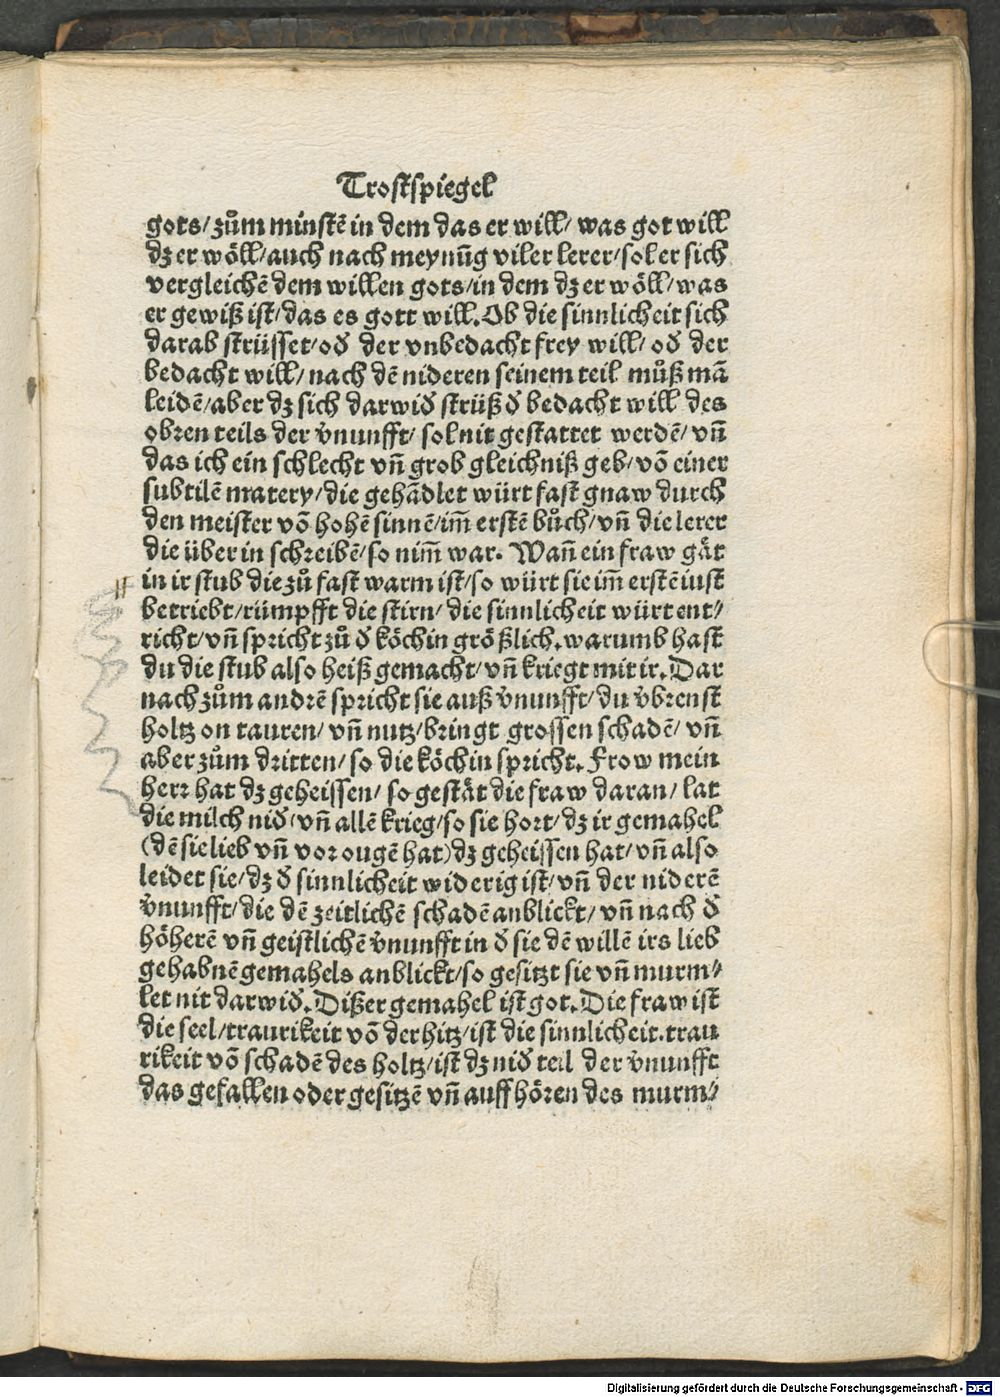 Trostspiegel
gots/ zům minstē in dem das er will/ was got will
dz er wöll/ auch nach meynūg viler lerer/ sol er sich
vergleichē dem willen gots/ in dem dz er wöll/ was
er gewiß ist/ das es gott will. Ob die sinnlicheit sich
darab strüsset/ od̕ der vnbedacht frey will/ od̕ der
bedacht will/ nach dē nideren seinem teil můß mā
leidē/ aber dz sich darwid̕ strüß d̕ bedacht will des
obren teils der v̕nunfft/ sol nit gestattet werdē/ vn̄
das ich ein schlecht vn̄ grob gleichniß geb/ vō einer
subtilē matery/ die gehādlet würt fast gnaw durch
den meister vō hohē sinnē/ im̄ erstē bůch/ vn̄ die lerer
die über in schreibē/ so nim̄ war. Wan̄ ein fraw gät
in ir stub die zů fast warm ist/ so würt sie im̄ erstē iust
betriebt/ rümpfft die stirn/ die sinnlicheit würt ent⸗
richt/ vn̄ spricht zů d̕ köchin größlich. warumb hast
du die stub also heiß gemacht/ vn̄ kriegt mit ir. Dar
nach zům andrē spricht sie auß v̕nunfft/ du v̕brenst
holtz on tauren/ vn̄ nutz/ bringt grossen schadē/ vn̄
aber zům dritten/ so die köchin spricht. Frow mein
herr hat dz geheissen/ so gestät die fraw daran/ lat
die milch nid̕/ vn̄ allē krieg/ so sie hort/ dz ir gemahel
(dē sie lieb vn̄ vor ougē hat) dz geheissen hat/ vn̄ also
leidet sie/ dz d̕ sinnlicheit widerig ist/ vn̄ der niderē
v̕nunfft/ die dē zeitlichē schadē anblickt/ vn̄ nach d̕
höherē vn̄ geistlichē v̕nunfft in d̕ sie dē willē irs lieb
gehabnē gemahels anblickt/ so gesitzt sie vn̄ murm⸗
let nit darwid̕. Dißer gemahel ist got. Die fraw ist
die seel/ traurikeit vō der hitz/ ist die sinnlicheit. trau
rikeit vō schadē des holtz/ ist dz nid̕ teil der v̕nunfft
das gefallen oder gesitzē vn̄ auffhören des murm⸗
Digitalisierung gefördert durch die Deutsche Forschungsgemeinschaft - DFG